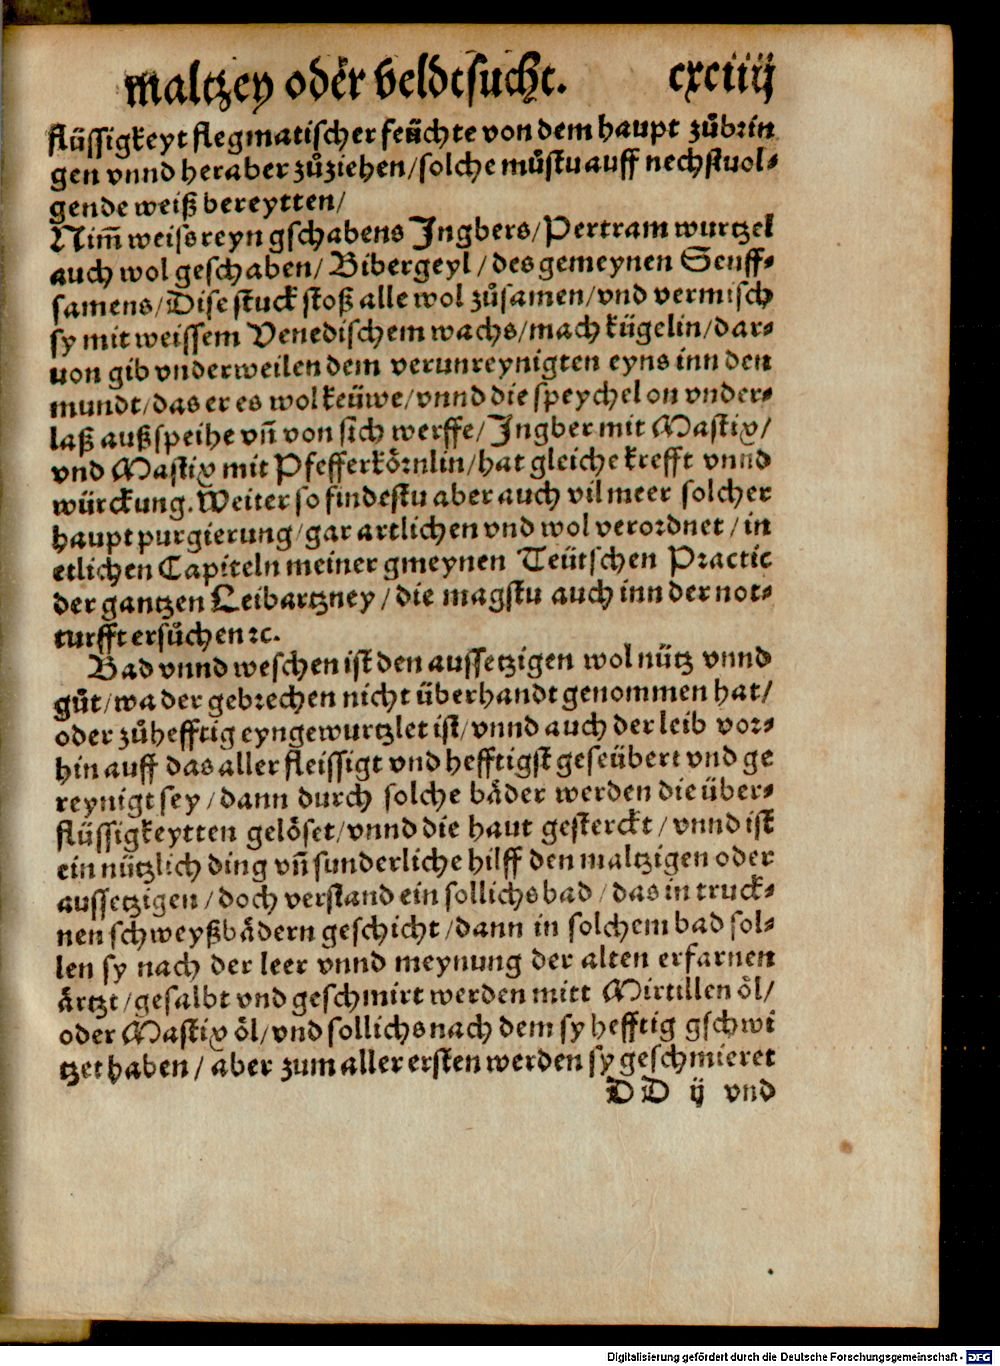 maltzey oder veldtsucht. cxciiij
flüssigkeyt flegmatischer feüchte von dem haupt zůbrin
gen vnnd heraber zůziehen/solche můstu auff nechstuol-
gende weiß bereytten/
Nim̃ weiss reyn gschabens Jngbers/Pertram wurtzel
auch wol geschaben/Bibergeyl/des gemeynen Senff-
samens/Dise stuck stoß alle wol zůsamen/vnd vermisch
sy mit weissem Venedischem wachs/mach kügelin/dar-
uon gib vnderweilen dem verunreynigten eyns inn den
mundt/das er es wol keüwe/vnnd die speychel on vnder-
laß außspeihe vñ von sich werffe/Jngber mit Mastix/
vnd Mastix mit Pfefferkörnlin/hat gleiche krefft vnnd
würckung. Weiter so findestu aber auch vil meer solcher
haupt purgierung/gar artlichen vnd wol verordnet/in
etlichen Capiteln meiner gmeynen Teütschen Practic
der gantzen Leibartzney/die magstu auch inn der not-
turfft ersůchen ꝛc.
Bad vnnd weschen ist den aussetzigen wol nütz vnnd
gůt/wa der gebrechen nicht überhandt genommen hat/
oder zůhefftig eyngewurtzlet ist/vnnd auch der leib vor-
hin auff das aller fleissigt vnd hefftigst geseübert vnd ge
reynigt sey/dann durch solche bäder werden die über-
flüssigkeytten gelöset/vnnd die haut gesterckt/vnnd ist
ein nützlich ding vñ sunderliche hilff den maltzigen oder
aussetzigen/doch verstand ein sollichs bad/das in truck-
nen schweyßbädern geschicht/dann in solchem bad sol-
len sy nach der leer vnnd meynung der alten erfarnen
ärtzt/gesalbt vnd geschmirt werden mitt Mirtillen öl/
oder Mastix öl/vnd sollichs nach dem sy hefftig gschwi
tzet haben/aber zum aller ersten werden sy geschmieret
DD ij vnd
Digitalisierung gefördert durch die Deutsche Forschungsgemeinschaft - DFG